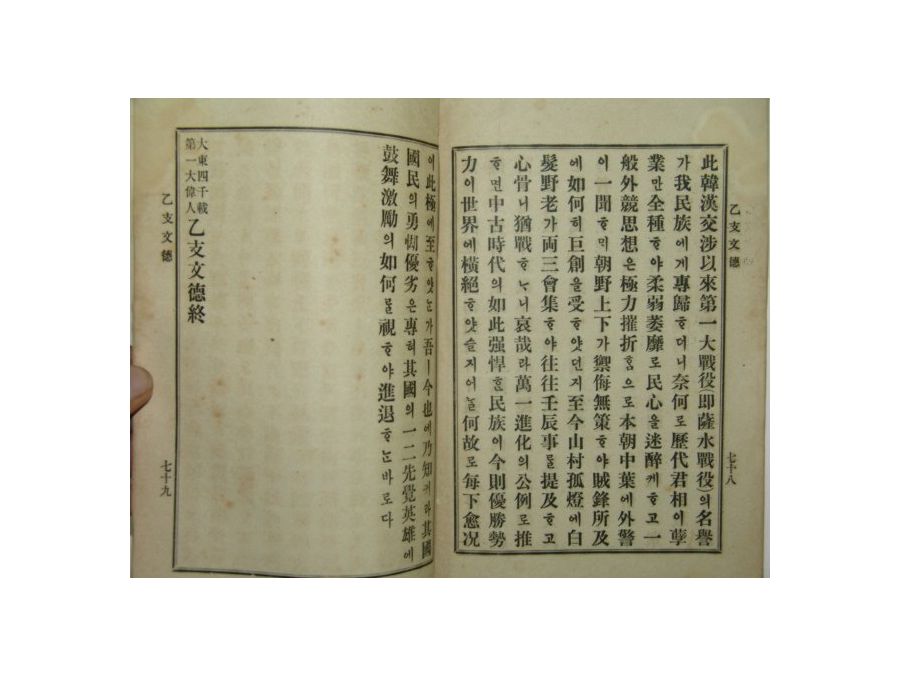 乙支文德
七十八
此韓漢交涉以來第一大戰役(即薩水戰役)의名譽
가我民族에게專歸ᄒᆞ더니奈何로歷代君相이孽
業만全種ᄒᆞ야柔弱萎靡로民心을迷醉케ᄒᆞ고一
般外競思想은極力摧折ᄒᆞᆷ으로本朝中葉에外警
이一聞ᄒᆞᄆᆡ朝野上下가禦侮無策ᄒᆞ야賊鋒所及
에如何히巨創을受ᄒᆞ얏던지至今山村孤燈에白
髮野老가両三會集ᄒᆞ야往往壬辰事ᄅᆞᆯ提及ᄒᆞ고
心骨니猶戰ᄒᆞᄂᆞ니哀哉라萬一進化의公例로推
ᄒᆞ면中古時代의如此强悍ᄒᆞᆫ民族이今則優勝勢
力이世界에橫絕ᄒᆞ얏슬지어ᄂᆞᆯ何故로每下愈况
이此極에至ᄒᆞ얏ᄂᆞᆫ가吾ㅣ今也에乃知커라其國
國民의勇㤼優劣은專혀其國의一二先覺英雄에
鼓舞激勵의如何ᄅᆞᆯ視ᄒᆞ야進退ᄒᆞᄂᆞᆫ바로다
大東四千載
第一大偉人
乙支文德終
乙支文德
七十九